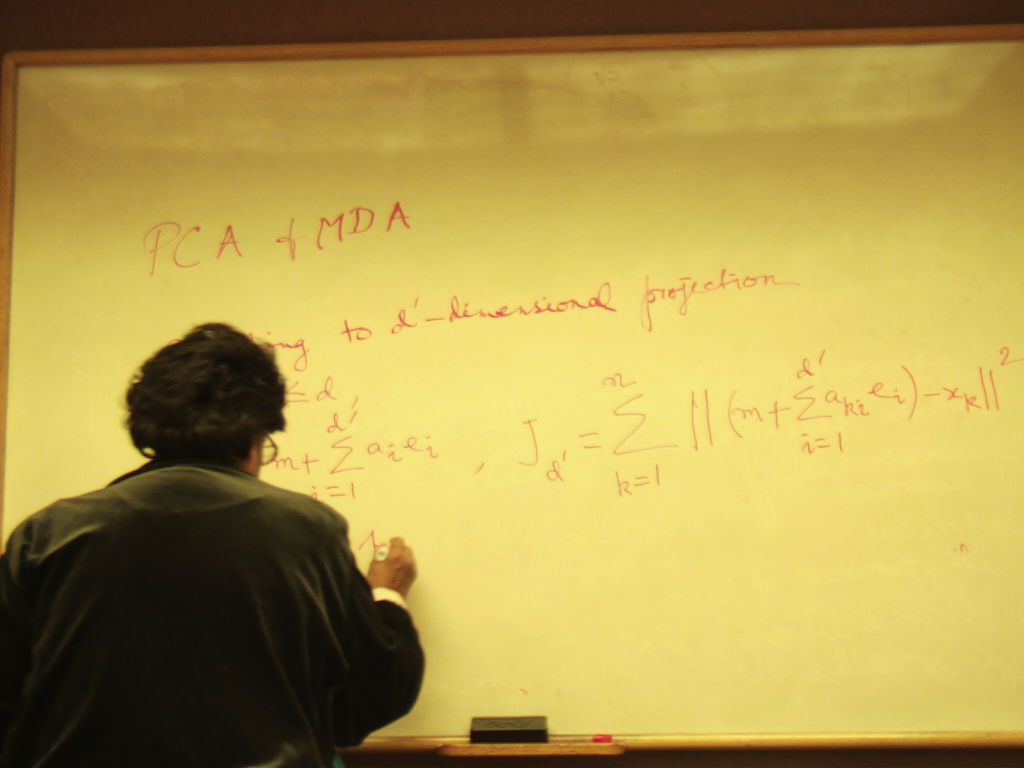 PCA & MDA
to d'-dimensional projection
≤ d,
m + Σ_{i=1}^{d'} a_i e_i , J_{d'} = Σ_{k=1}^{n} || (m + Σ_{i=1}^{d'} a_{ki} e_i) - x_k ||^2